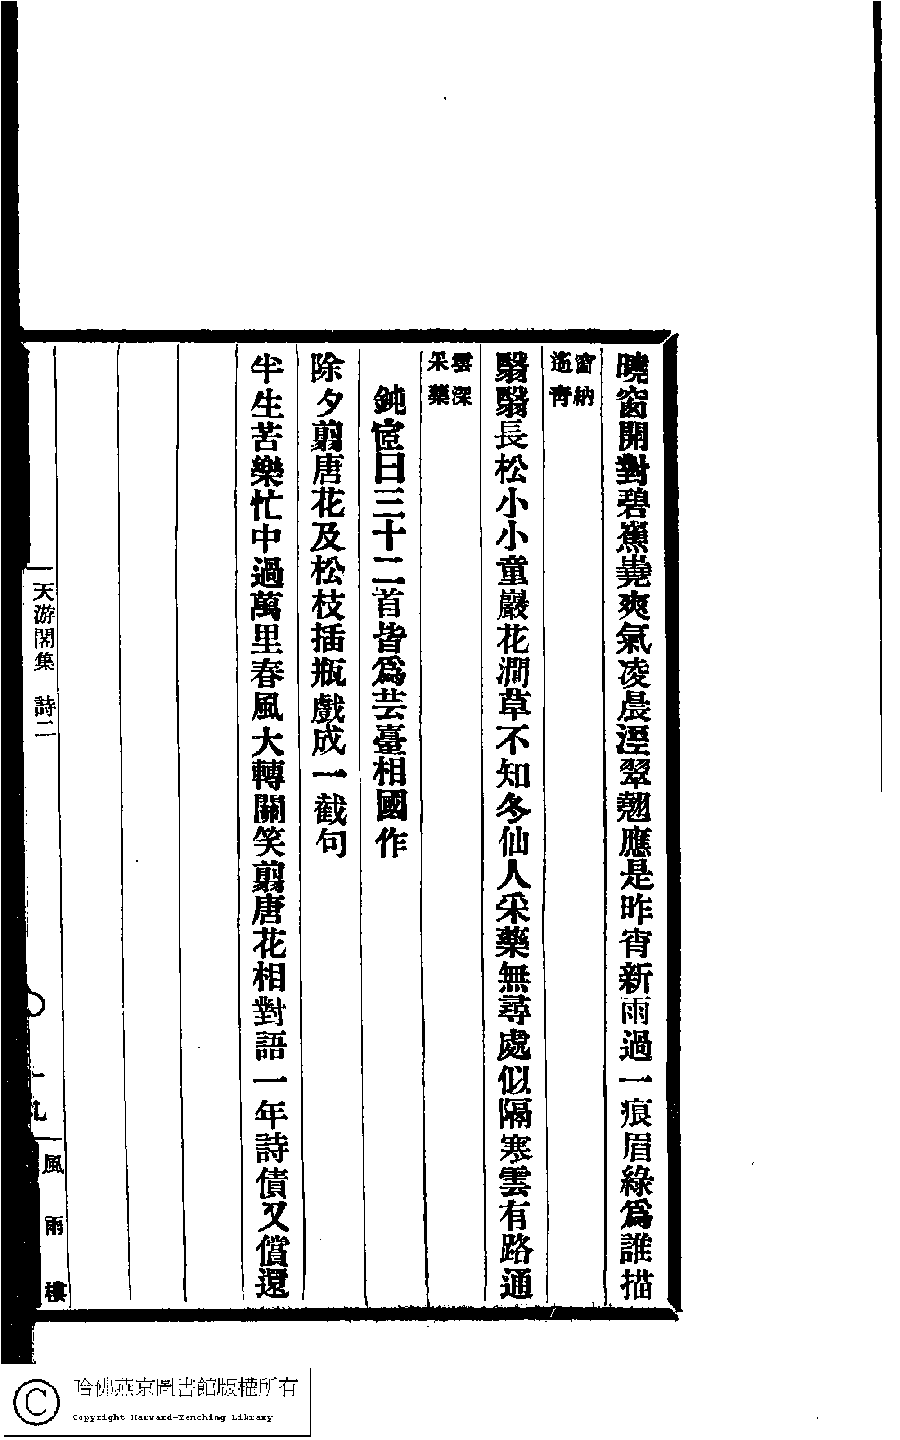 曉窗開對碧嶕嶢爽氣凌晨溼翠翹應是昨宵新雨過一痕眉綠爲誰描
窗納
遙青
翳翳長松小小童巖花澗草不知冬仙人采藥無尋處似隔寒雲有路通
雲深
采藥
鈍宧曰三十二首皆爲芸臺相國作
除夕翦唐花及松枝插瓶戲成一截句
半生苦樂忙中過萬里春風大轉關笑翦唐花相對語一年詩債又償還
天游閣集 詩二
十九
風雨樓
哈佛燕京圖書館版權所有
Copyright Harvard-Yenching Library